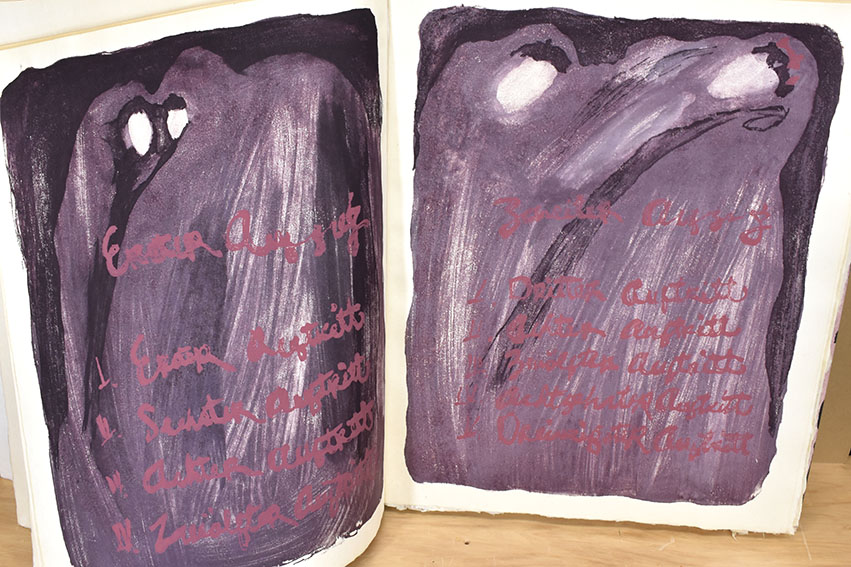 Erster Aufzug
I. Erster Auftritt
II. Auftritt
Achter Auftritt
Auftritt
Zweiter Aufzug
I. Dritter Auftritt
Achter Auftritt
Zwölfter Auftritt
Achtzehnter Auftritt
Auftritt